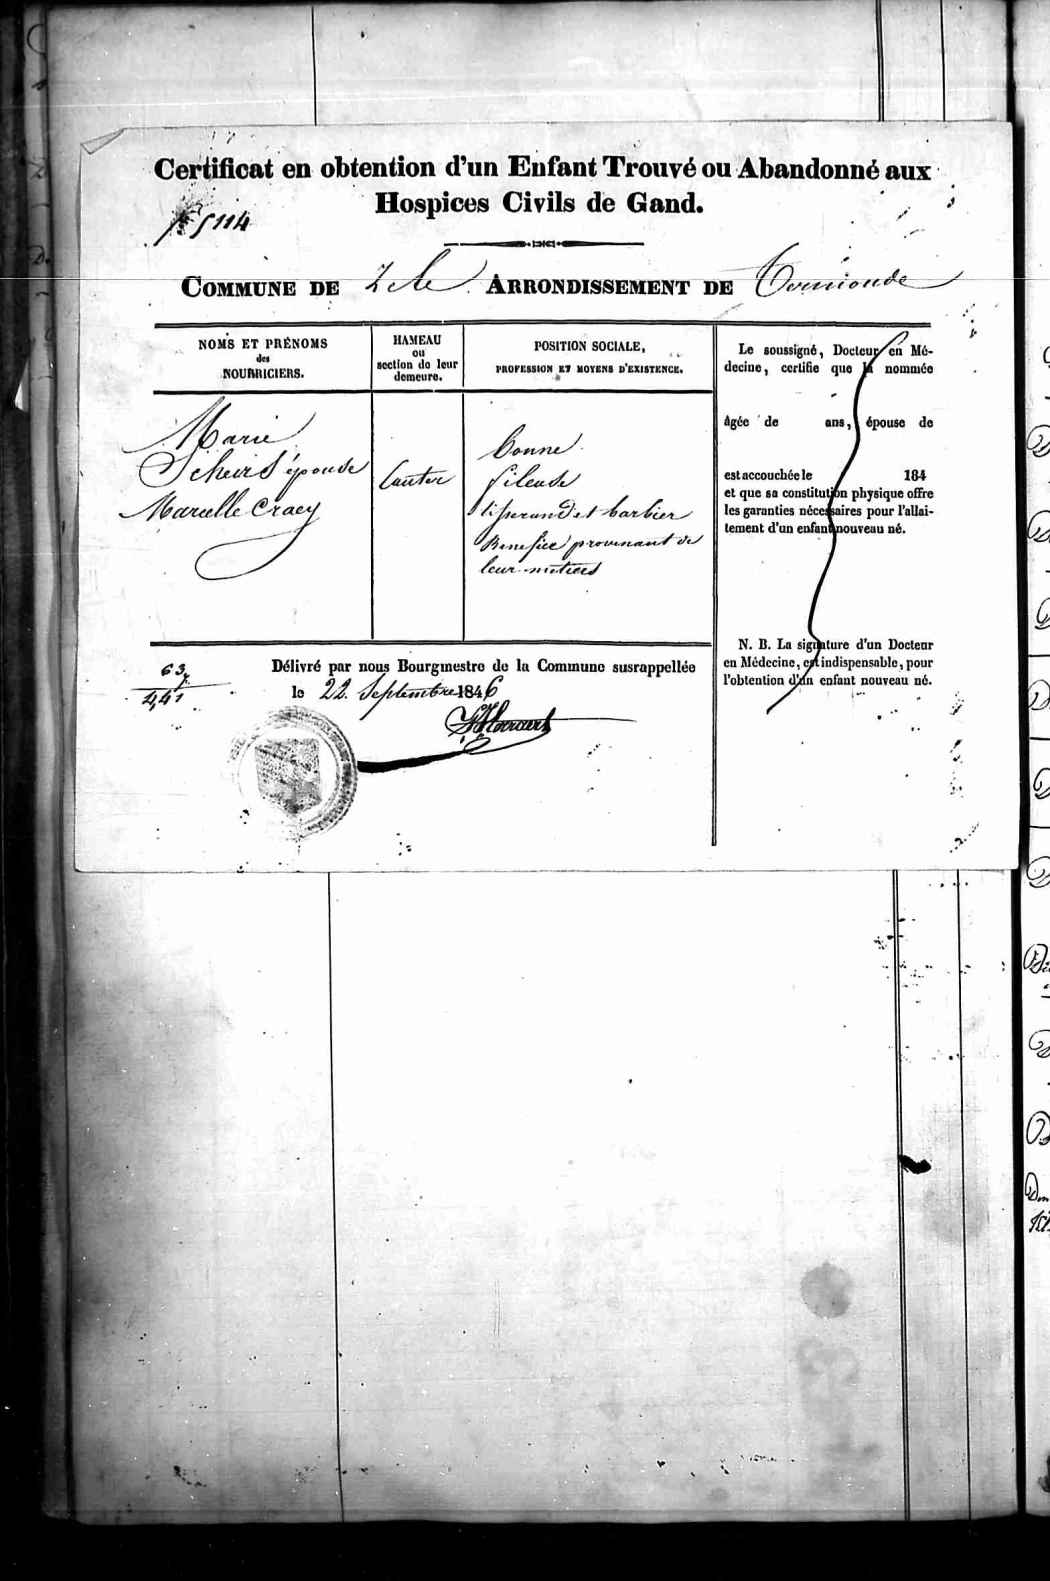 Certificat en obtention d'un Enfant Trouvé ou Abandonné aux
Hospices Civils de Gand.
5114
COMMUNE DE Zele ARRONDISSEMENT DE Termonde
NOMS ET PRÉNOMS
des
NOURRICIERS.
HAMEAU
ou
section de leur
demeure.
POSITION SOCIALE,
PROFESSION ET MOYENS D'EXISTENCE.
Marie
Scheirs épouse
Marcelle Craey
Cauter
bonne
fileuse
tisserand et barbier
Benefice provenant de
leur metiers
Le soussigné, Docteur en Mé-
decine, certifie que la nommée
âgée de ans, épouse de
est accouchée le 184
et que sa constitution physique offre
les garanties nécessaires pour l'allai-
tement d'un enfant nouveau né.
N. B. La signature d'un Docteur
en Médecine, est indispensable, pour
l'obtention d'un enfant nouveau né.
63
441
Délivré par nous Bourgmestre de la Commune susrappellée
le 22 Septembre 1846